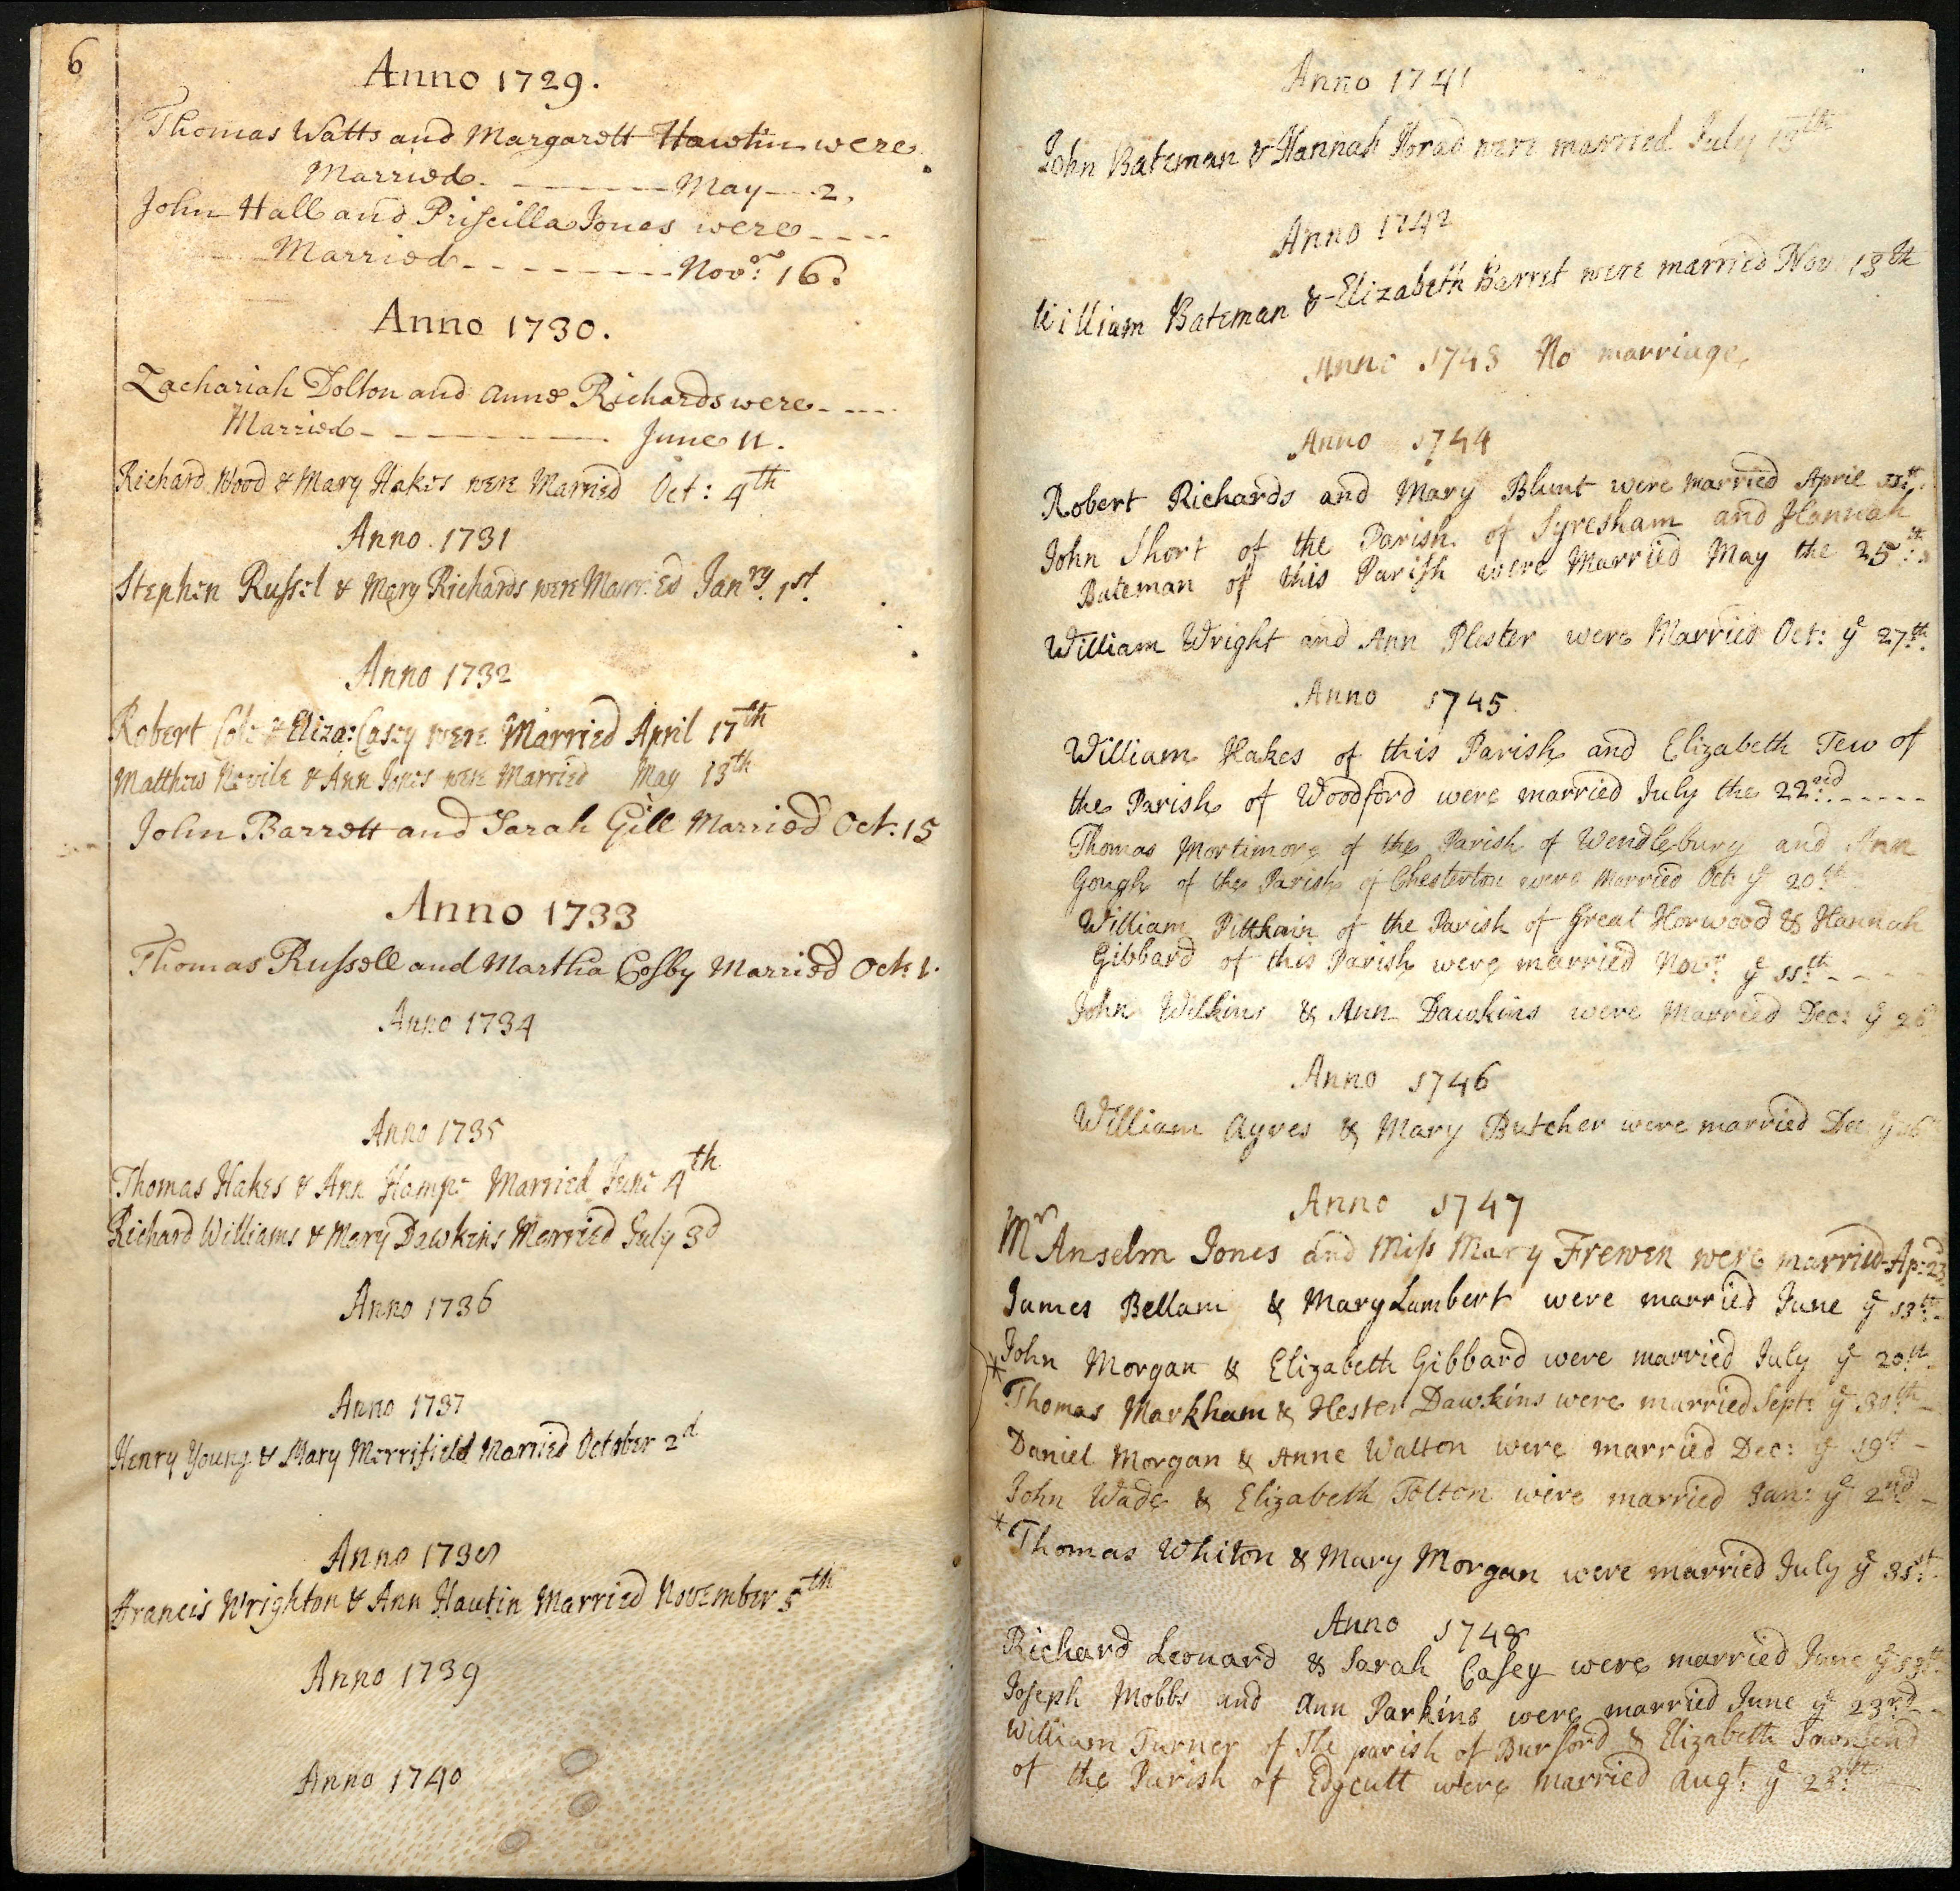 6
Anno 1729.
Thomas Watts and Margarett Hawtin were
Married. May 2,
John Hall and Priscilla Jones were
Married Novr: 16.
Anno 1730.
Zachariah Dolton and Anne Richards were
Married June 11.
Richard Wood & Mary Hakes were Married Oct: 4th
Anno. 1731
Stephen Russel & Mary Richards were Married Janry. 1st.
Anno 1732
Robert Cole & Eliza: Casey were Married April 17th
Matthew Nevile & Ann Jones were Married May 13th
John Barrett and Sarah Gill Married Oct: 15
Anno 1733
Thomas Russell and Martha Cosby Married Oct: 1.
Anno 1734
Anno 1735
Thomas Hakes & Ann Married June 4th
Richard Williams & Mary Dawkins Married July 3d
Anno 1736
Anno 1737
Henry Young & Mary Merrifield Married October 2d
Anno 1738
Francis Wrighton & Ann Hautin Married November 5th
Anno 1739
Anno 1740
Anno 1741
John Bateman & Hannah were married July
Anno 1742
William Bateman & Elizabeth Barret were married Nov. 13th
Anno 1743 No marriage.
Anno 1744
Robert Richards and Mary Blunt were married April
John Short of the Parish of Syresham and Hannah
Bateman of this Parish were Married May the 25th:
William Wright and Ann Plester were Married Oct: ye 27th.
Anno 1745
William Hakes of this Parish and Elizabeth Tew of
the Parish of Woodford were married July the 22nd
Thomas Mortimore of the Parish of Wendlebury and Ann
Gough of the Parish of Chesterton were Married Oct: ye 20th
William Pittkain of the Parish of Great Horwood & Hannah
Gibbard of this Parish were married Novr: ye 11th
John Wilkins & Ann Dawkins were Married Dec: ye
Anno 1746
William Ayres & Mary Butcher were married Dec ye
Anno 1747
Mr Anselm Jones and Miss Mary Frewen were married Ap: 23
James Bellam & Mary Lambert were married June ye 13th
* John Morgan & Elizabeth Gibbard were married July ye 20th
Thomas Markham & Hester Dawkins were married Sept: ye 30th
Daniel Morgan & Anne Walton were married Dec: ye 19th
John Wade & Elizabeth Tolton were married Jan: ye 2nd
* Thomas Whiton & Mary Morgan were married July ye 31st.
Anno 1748
Richard Leonard & Sarah Casey were married June ye 13th
Joseph Mobbs and Ann Parkins were married June ye 23rd
William Turner of The parish of Burford & Elizabeth Townsend
of the Parish of Edgcutt were married Augt: ye